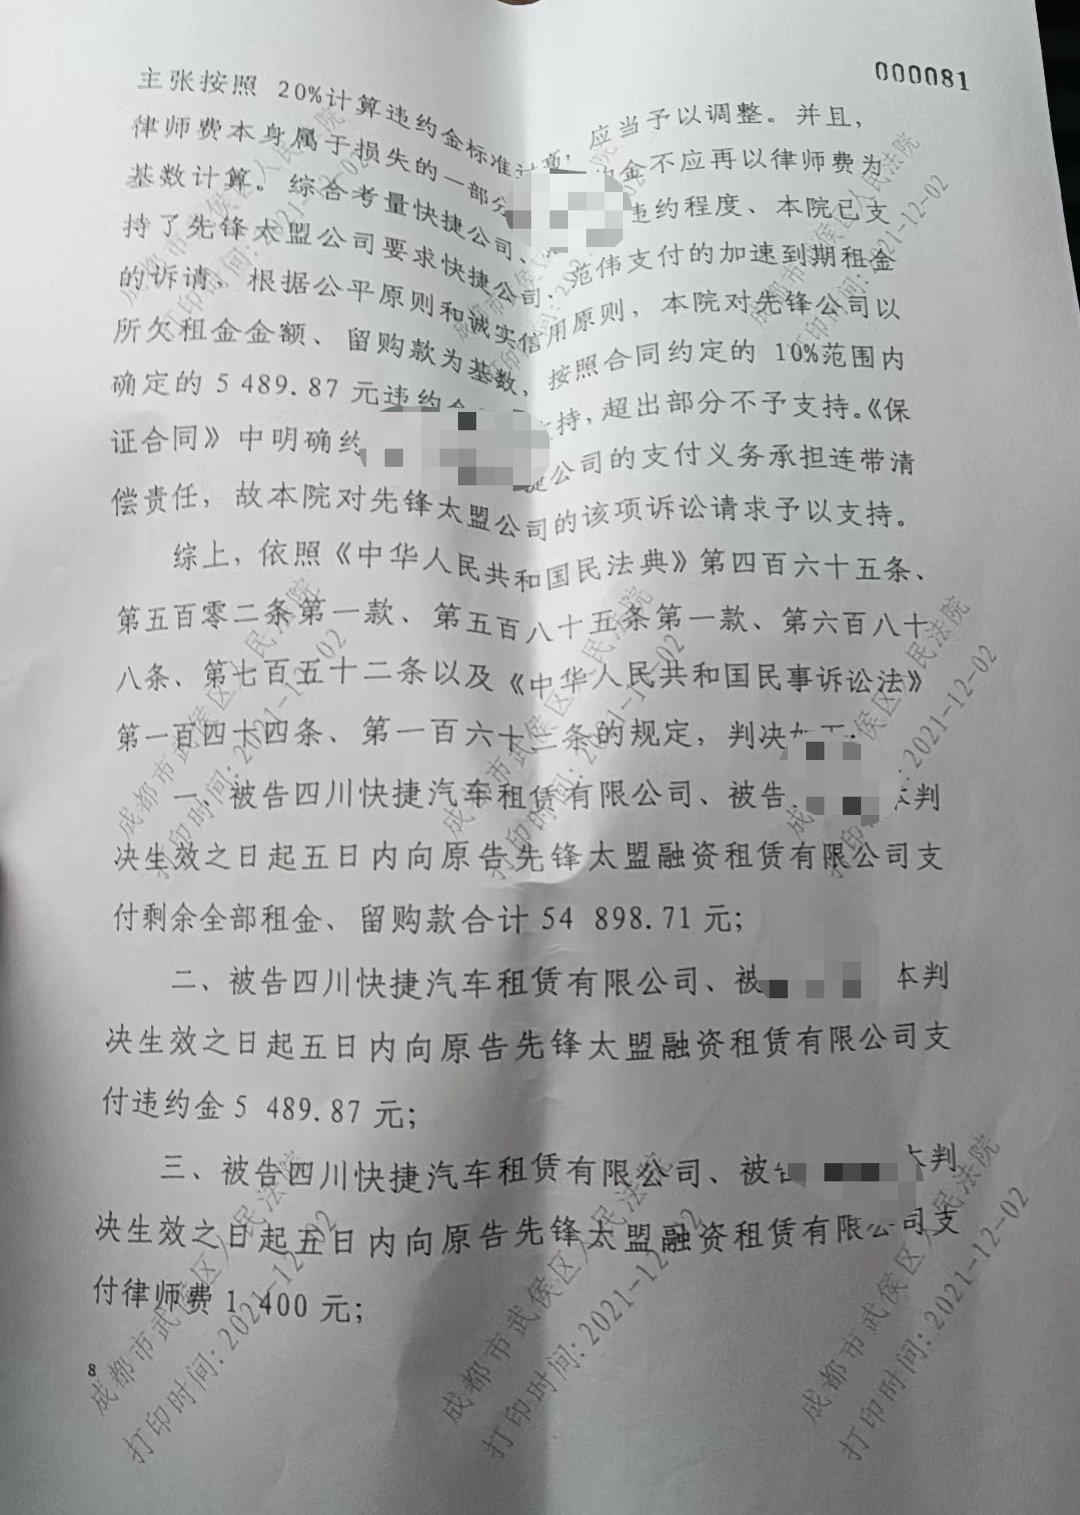 000081
主张按照 20%计算违约金标准过高，应当予以调整。并且，
律师费本身属于损失的一部分 金不应再以律师费为
基数计算。综合考量快捷公司、 违约程度、本院已支
持了先锋太盟公司要求快捷公司、范伟支付的加速到期租金
的诉请，根据公平原则和诚实信用原则，本院对先锋公司以
所欠租金金额、留购款为基数，按照合同约定的 10%范围内
确定的 5 489.87 元违约 持，超出部分不予支持。《保
证合同》中明确约 捷公司的支付义务承担连带清
偿责任，故本院对先锋太盟公司的该项诉讼请求予以支持。
综上，依照《中华人民共和国民法典》第四百六十五条、
第五百零二条第一款、第五百八十五条第一款、第六百八十
八条、第七百五十二条以及《中华人民共和国民事诉讼法》
第一百四十四条、第一百六十二条的规定，判决如下：
一、被告四川快捷汽车租赁有限公司、被告 本判
决生效之日起五日内向原告先锋太盟融资租赁有限公司支
付剩余全部租金、留购款合计 54 898.71 元；
二、被告四川快捷汽车租赁有限公司、被 本判
决生效之日起五日内向原告先锋太盟融资租赁有限公司支
付违约金 5 489.87 元；
三、被告四川快捷汽车租赁有限公司、被告 本判
决生效之日起五日内向原告先锋太盟融资租赁有限公司支
付律师费 1 400 元；
8
成都市武侯区人民法院
打印时间：2021-12-02